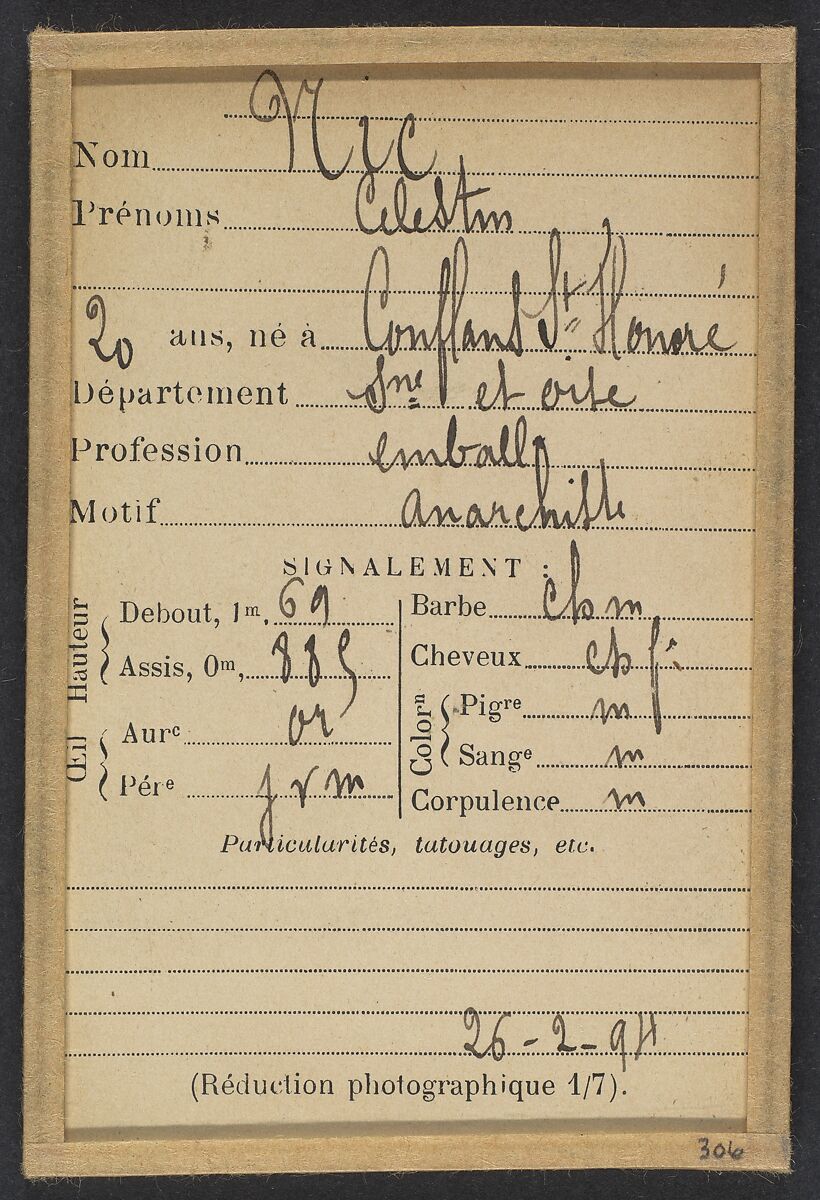 Nom Nic
Prénoms Celestin
20 ans, né à Conflans St Honoré
Département Sne et oise
Profession emballr
Motif anarchiste
SIGNALEMENT :
Hauteur
Debout, 1m, 69
Assis, 0m, 885
Œil
Aurc or
Pére j v m
Barbe ch m
Cheveux ch f:
Colorn
Pigre m
Sange m
Corpulence m
Particularités, tatouages, etc.
26-2-94
(Réduction photographique 1/7).
306